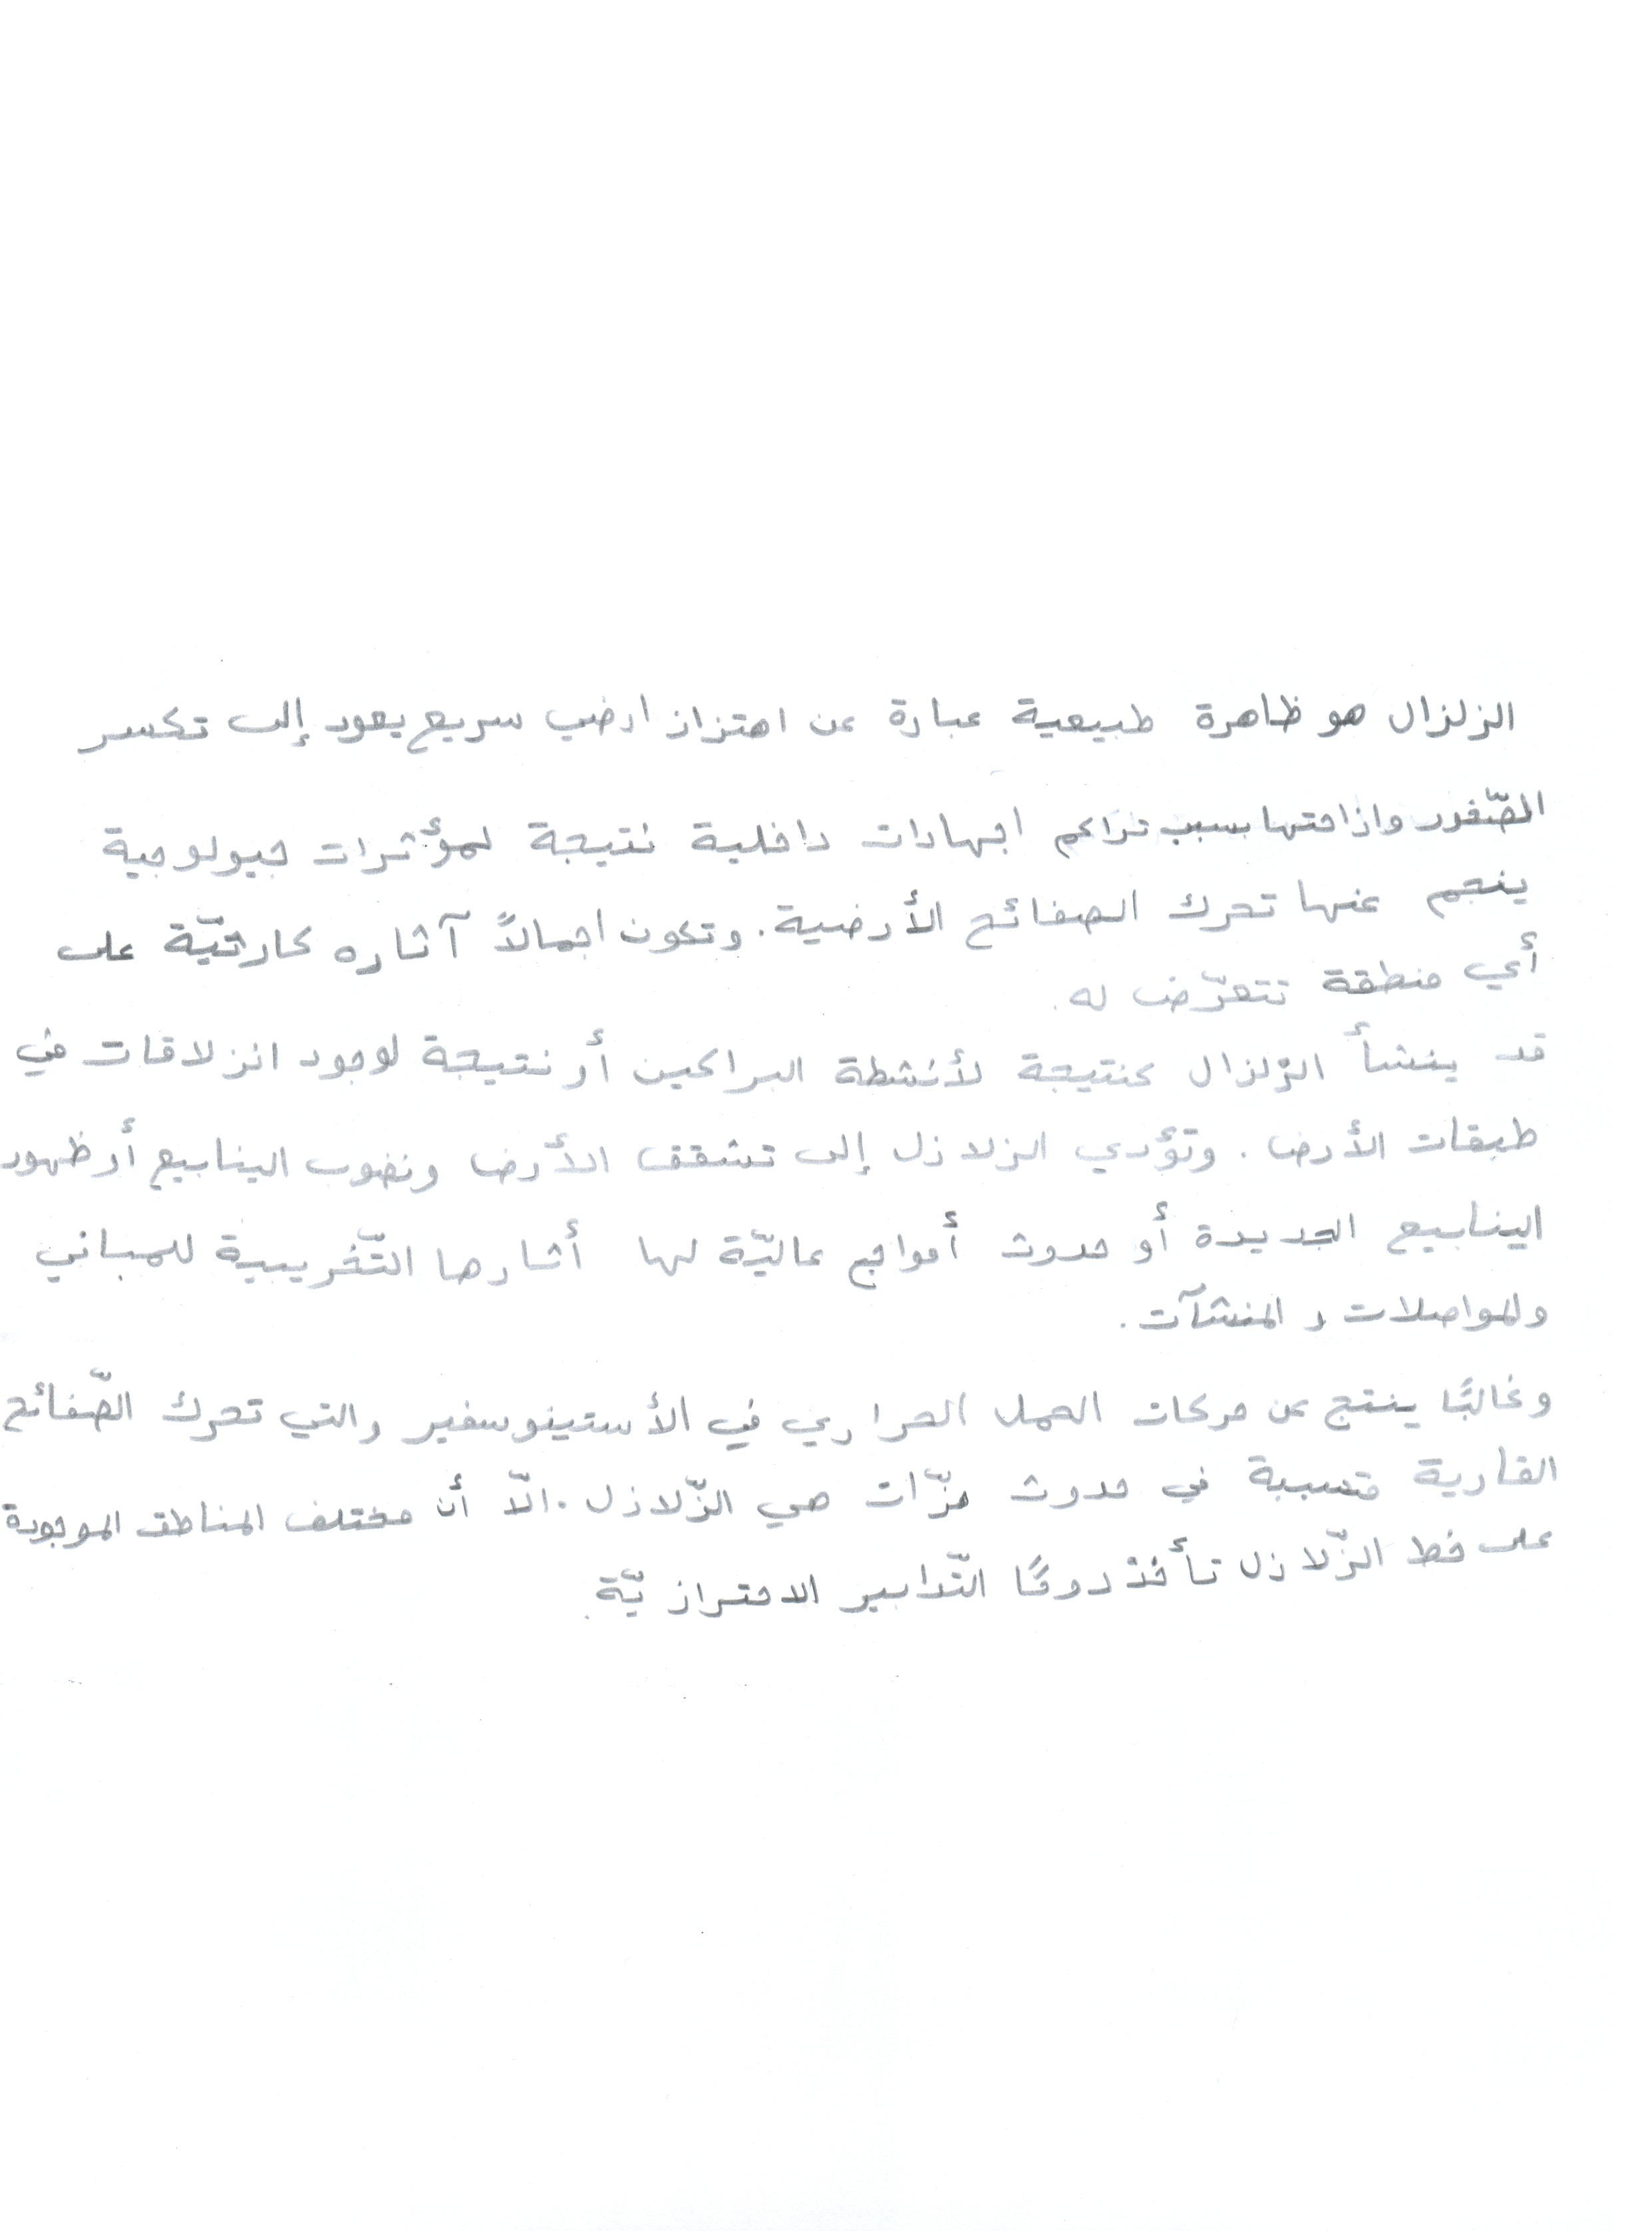 الزلزال هو ظاهرة طبيعية عبارة عن اهتزاز ارضي سريع يعود إلى تكسر
الصّخور وازاحتها بسبب تراكم اجهادات داخلية نتيجة لمؤثرات جيولوجية
ينجم عنها تحرك الصفائح الأرضية. وتكون اجمالاً آثاره كارثيّة على
أي منطقة تتعرّض له.
قد ينشأ الزّلزال كنتيجة لأنشطة البراكين أو نتيجة لوجود انزلاقات في
طبقات الأرض. وتؤدي الزلازل إلى تشقق الأرض ونضوب الينابيع أو ظهور
الينابيع الجديدة أو حدوث أمواج عاليّة لها أثارها التّخريبية للمباني
والمواصلات والمنشآت.
وغالبًا ينتج عن حركات الحمل الحراري في الأستينوسفير والتي تحرك الصّفائح
القارية متسببة في حدوث هزّات هي الزّلازل. الاّ أن مختلف المناطق الموجودة
على خط الزّلازل تأخذ دومًا التّدابير الاحترازيّة.